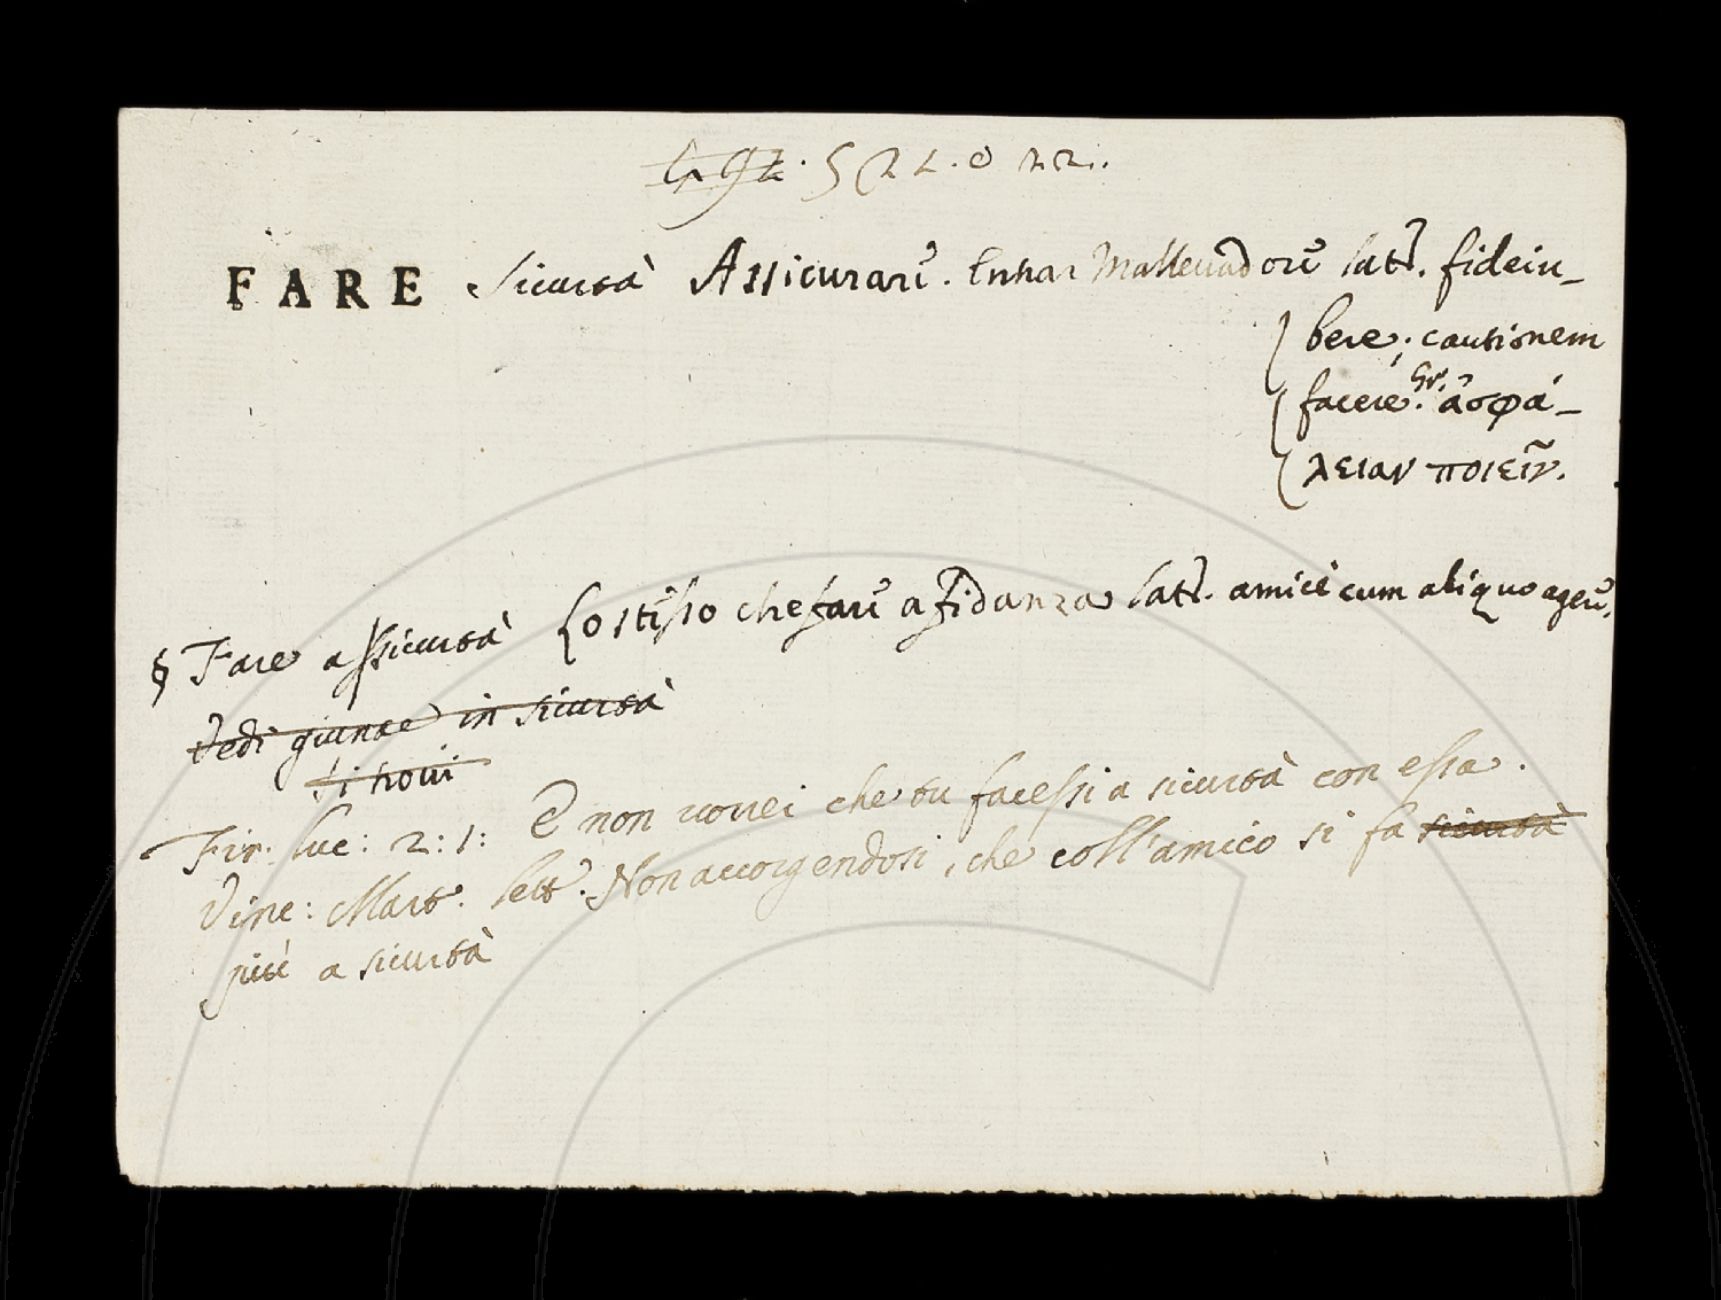 522. e 22.
FARE sicurtà Assicurare. Entrar Mallevadore lat. fideiu-
bere; cautionem
facere. Gr. ἀσφά-
λειαν ποιεῖν.
§ Fare a sicurtà Lo stesso che fare a fidanza lat. amice cum aliquo agere.
Vedi giunte in sicurtà
si trovi
Fir. Luc: 2:1: E non vorrei che tu facessi a sicurtà con essa.
Vinc: Mart. lett. Non accorgendosi, che coll'amico si fa sicurtà
più a sicurtà